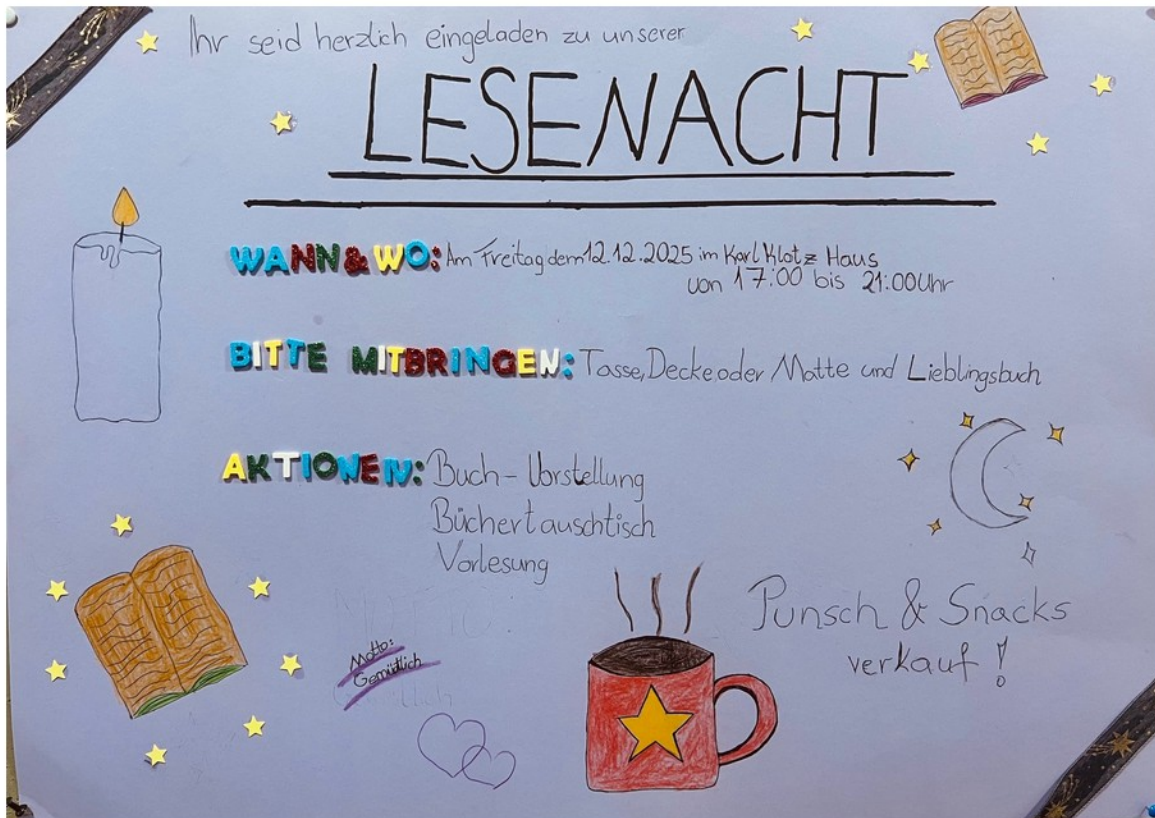 Ihr seid herzlich eingeladen zu unserer
LESENACHT
WANN&WO: Am Freitag dem 12.12.2025 im Karl Klotz Haus
von 17:00 bis 21:00 Uhr
BITTE MITBRINGEN: Tasse, Decke oder Matte und Lieblingsbuch
AKTIONEN: Buch-Vorstellung
Büchertauschtisch
Vorlesung
Motto:
Gemütlich
Punsch & Snacks
verkauf!